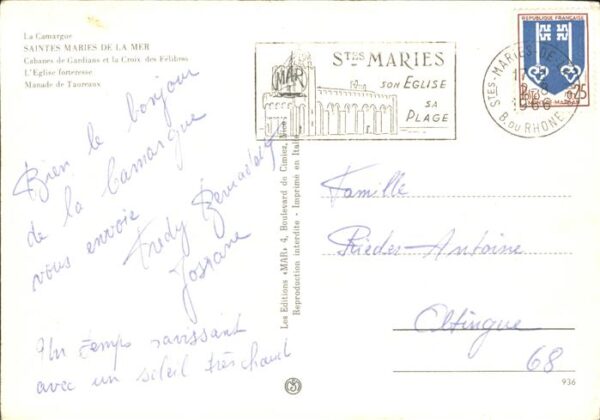 La Camargue
SAINTES MARIES DE LA MER
Cabanes de Gardians et la Croix des Félibres
L'Eglise forteresse
Manade de Taureaux
MAR
STES MARIES
SON EGLISE
SA
PLAGE
STES-MARIES-DE
17
1966
B. DU RHONE
REPUBLIQUE FRANÇAISE
0,25
MONT-DE-MARSAN
Bien le bonjour
de la Camargue
vous envoie
Fredy Bernadette
Josiane
Un temps ravissant
avec un soleil très chaud
Les Editions «MAR» 4, Boulevard de Cimiez, Nice
Reproduction interdite - Imprimé en Italie
Famille
Rieder-Antoine
Oltingue
68
936